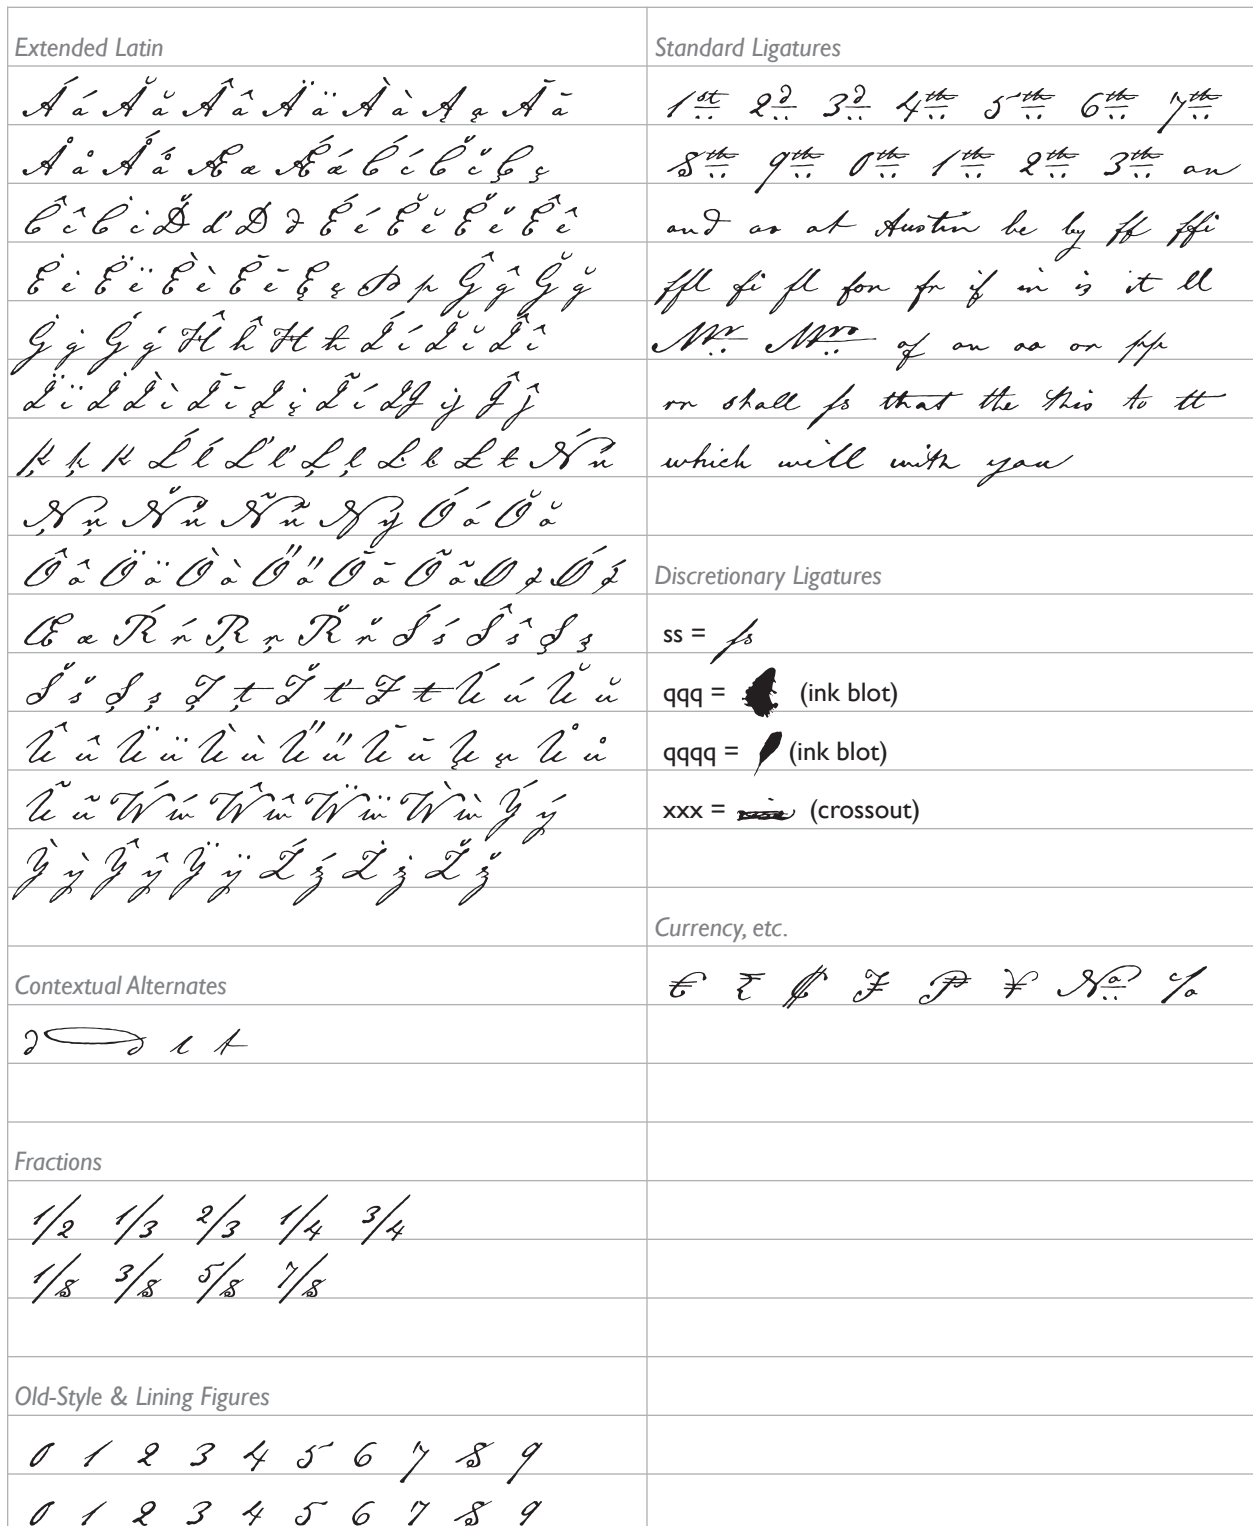 Extended Latin
Á á Ă ă Â â Ä ä À à Ą ą Ā ā
Å å Ǻ ǻ Æ æ Ǽ ǽ Ć ć Č č Ç ç
Ĉ ĉ Ċ ċ Ď ď Đ đ É é Ĕ ĕ Ě ě Ê ê
Ė ė Ë ë È è Ē ē Ę ę Þ þ Ĝ ĝ Ğ ğ
Ġ ġ Ǵ ǵ Ĥ ĥ Ħ ħ Í í Ĭ ĭ Î î
Ï ï İ Ì ì Ī ī Į į Ĩ í IJ ij Ĵ ĵ
Ķ ķ ĸ Ĺ ĺ Ľ ľ Ļ ļ Ŀ ŀ Ł ł Ń ń
Ņ ņ Ň ň Ñ ñ Ŋ ŋ Ó ó Ŏ ŏ
Ô ô Ö ö Ò ò Ő ő Ō ō Õ õ Ø ø Ǿ ǿ
Œ œ Ŕ ŕ Ŗ ŗ Ř ř Ś ś Ŝ ŝ Ş ş
Š š Ș ș Ţ ţ Ť ť Ŧ ŧ Ú ú Ŭ ŭ
Û û Ü ü Ù ù Ű ű Ū ū Ų ų Ů ů
Ũ ũ Ẃ ẃ Ŵ ŵ Ẅ ẅ Ẁ ẁ Ý ý
Ỳ ỳ Ŷ ŷ Ÿ ÿ Ź ź Ż ż Ž ž
Contextual Alternates
d d e t
Fractions
1/2 1/3 2/3 1/4 3/4
1/8 3/8 5/8 7/8
Old-Style & Lining Figures
0 1 2 3 4 5 6 7 8 9
0 1 2 3 4 5 6 7 8 9
Standard Ligatures
1st 2d 3d 4th 5th 6th 7th
8th 9th 0th 1th 2th 3th an
and as at Austin be by ff ffi
ffl fi fl for fr if in is it ll
Mr Mrs of on oo or pp
rr shall ss that the this to tt
which will with you
Discretionary Ligatures
ss = ss
qqq = (ink blot)
qqqq = (ink blot)
xxx = (crossout)
Currency, etc.
€ ₹ ₡ ₣ ₱ ¥ № %